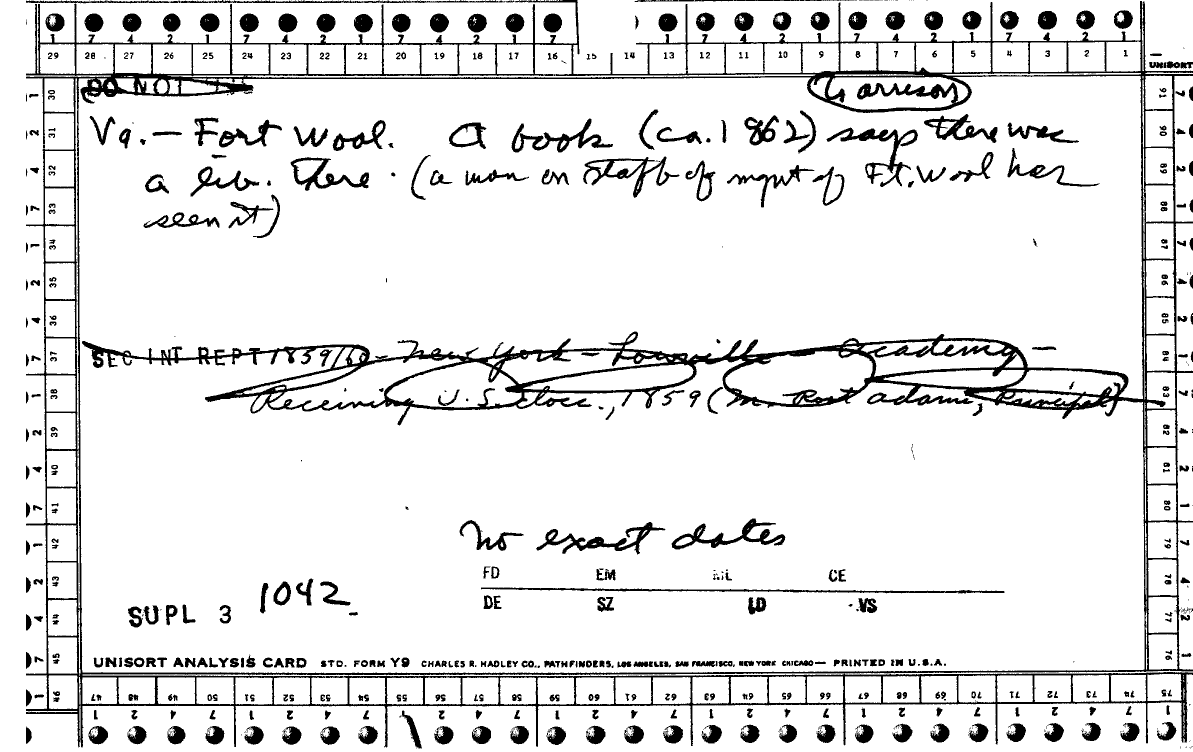 7 4 2 1 7 4 2 1 7 4 2 1 7 1 7 4 2 1 7 4 2 1 7 4 2 1
29 28 27 26 25 24 23 22 21 20 19 18 17 16 15 14 13 12 11 10 9 8 7 6 5 4 3 2 1
UNISORT
DO NOT
Garrison
Va. – Fort Wool. A book (ca. 1862) says there was
a lib. there. (a man on staff of mgmt of Ft. Wool has
seen it)
SEC INT REPT 1859/60 – New York – Lowville – Academy –
Receiving U.S. docs., 1859 (M. Post Adams, Principal)
No exact dates
FD EM ML CE
DE SZ LD VS
SUPL 3 1042
UNISORT ANALYSIS CARD STD. FORM Y9 CHARLES R. HADLEY CO., PATHFINDERS, LOS ANGELES, SAN FRANCISCO, NEW YORK CHICAGO — PRINTED IN U.S.A.
47 48 49 50 51 52 53 54 55 56 57 58 59 60 61 62 63 64 65 66 67 68 69 70 71 72 73 74 75